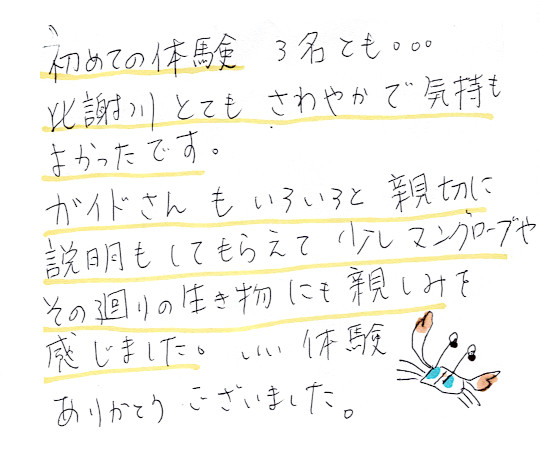 初めての体験 3名とも...
比謝川とても さわやかで気持も
よかったです。
ガイドさんもいろいろと親切に
説明もしてもらえて少しマングローブや
その廻りの生き物にも親しみを
感じました。いい体験
ありがとうございました。